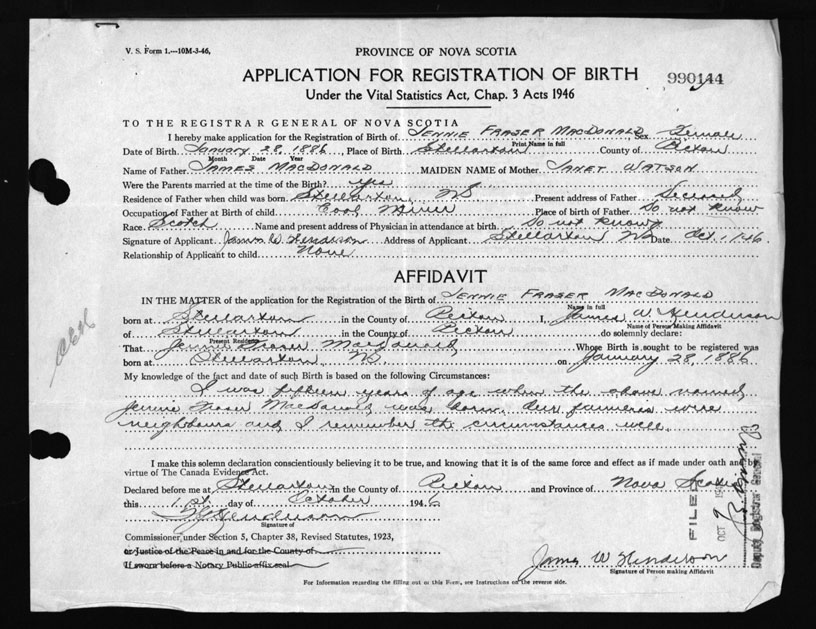 V. S. Form 1.---10M-3-46,
PROVINCE OF NOVA SCOTIA
APPLICATION FOR REGISTRATION OF BIRTH
990144
Under the Vital Statistics Act, Chap. 3 Acts 1946
TO THE REGISTRAR GENERAL OF NOVA SCOTIA
I hereby make application for the Registration of Birth of JENNIE FRASER MACDONALD Sex Female
Print Name in full
Date of Birth January 28, 1886 Place of Birth Stellarton County of Pictou
Month Date Year
Name of Father JAMES MACDONALD MAIDEN NAME of Mother JANET WATSON
Were the Parents married at the time of the Birth? yes
Residence of Father when child was born Stellarton, NS Present address of Father Deceased
Occupation of Father at Birth of child Coal Miner Place of birth of Father Do not know
Race Scotch Name and present address of Physician in attendance at birth Do not know
Signature of Applicant James W Henderson Address of Applicant Stellarton NS Date Oct. 1/46
Relationship of Applicant to child None
AFFIDAVIT
IN THE MATTER of the application for the Registration of the Birth of JENNIE FRASER MACDONALD
Name in full
born at Stellarton in the County of Pictou I, James W Henderson
Name of Person Making Affidavit
of Stellarton in the County of Pictou do solemnly declare:
Present Residence
That Jennie Fraser Macdonald Whose Birth is sought to be registered was
born at Stellarton, NS on January 28, 1886
My knowledge of the fact and date of such Birth is based on the following Circumstances:
I was fifteen years of age when the above named
Jennie Fraser MacDonald was born. Our families were
neighbours and I remember the circumstances well.
I make this solemn declaration conscientiously believing it to be true, and knowing that it is of the same force and effect as if made under oath and by
virtue of The Canada Evidence Act.
Declared before me at Stellarton in the County of Pictou and Province of Nova Scotia
this 1st day of October 1946
Henderson
Signature of
Commissioner under Section 5, Chapter 38, Revised Statutes, 1923,
or Justice of the Peace in and for the County of
If sworn before a Notary Public affix seal
James W Henderson
Signature of Person making Affidavit
For Information regarding the filling out of this Form, see Instructions on the reverse side.
FILED
OCT
Deputy Registrar General